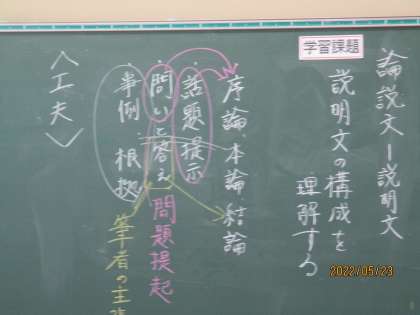 学習課題
論説文ー説明文
説明文の構成を
理解する
序論 本論 結論
・話題提示
・問いと答え 問題提起
・事例・根拠 筆者の主
〈工夫〉
2022/05/23